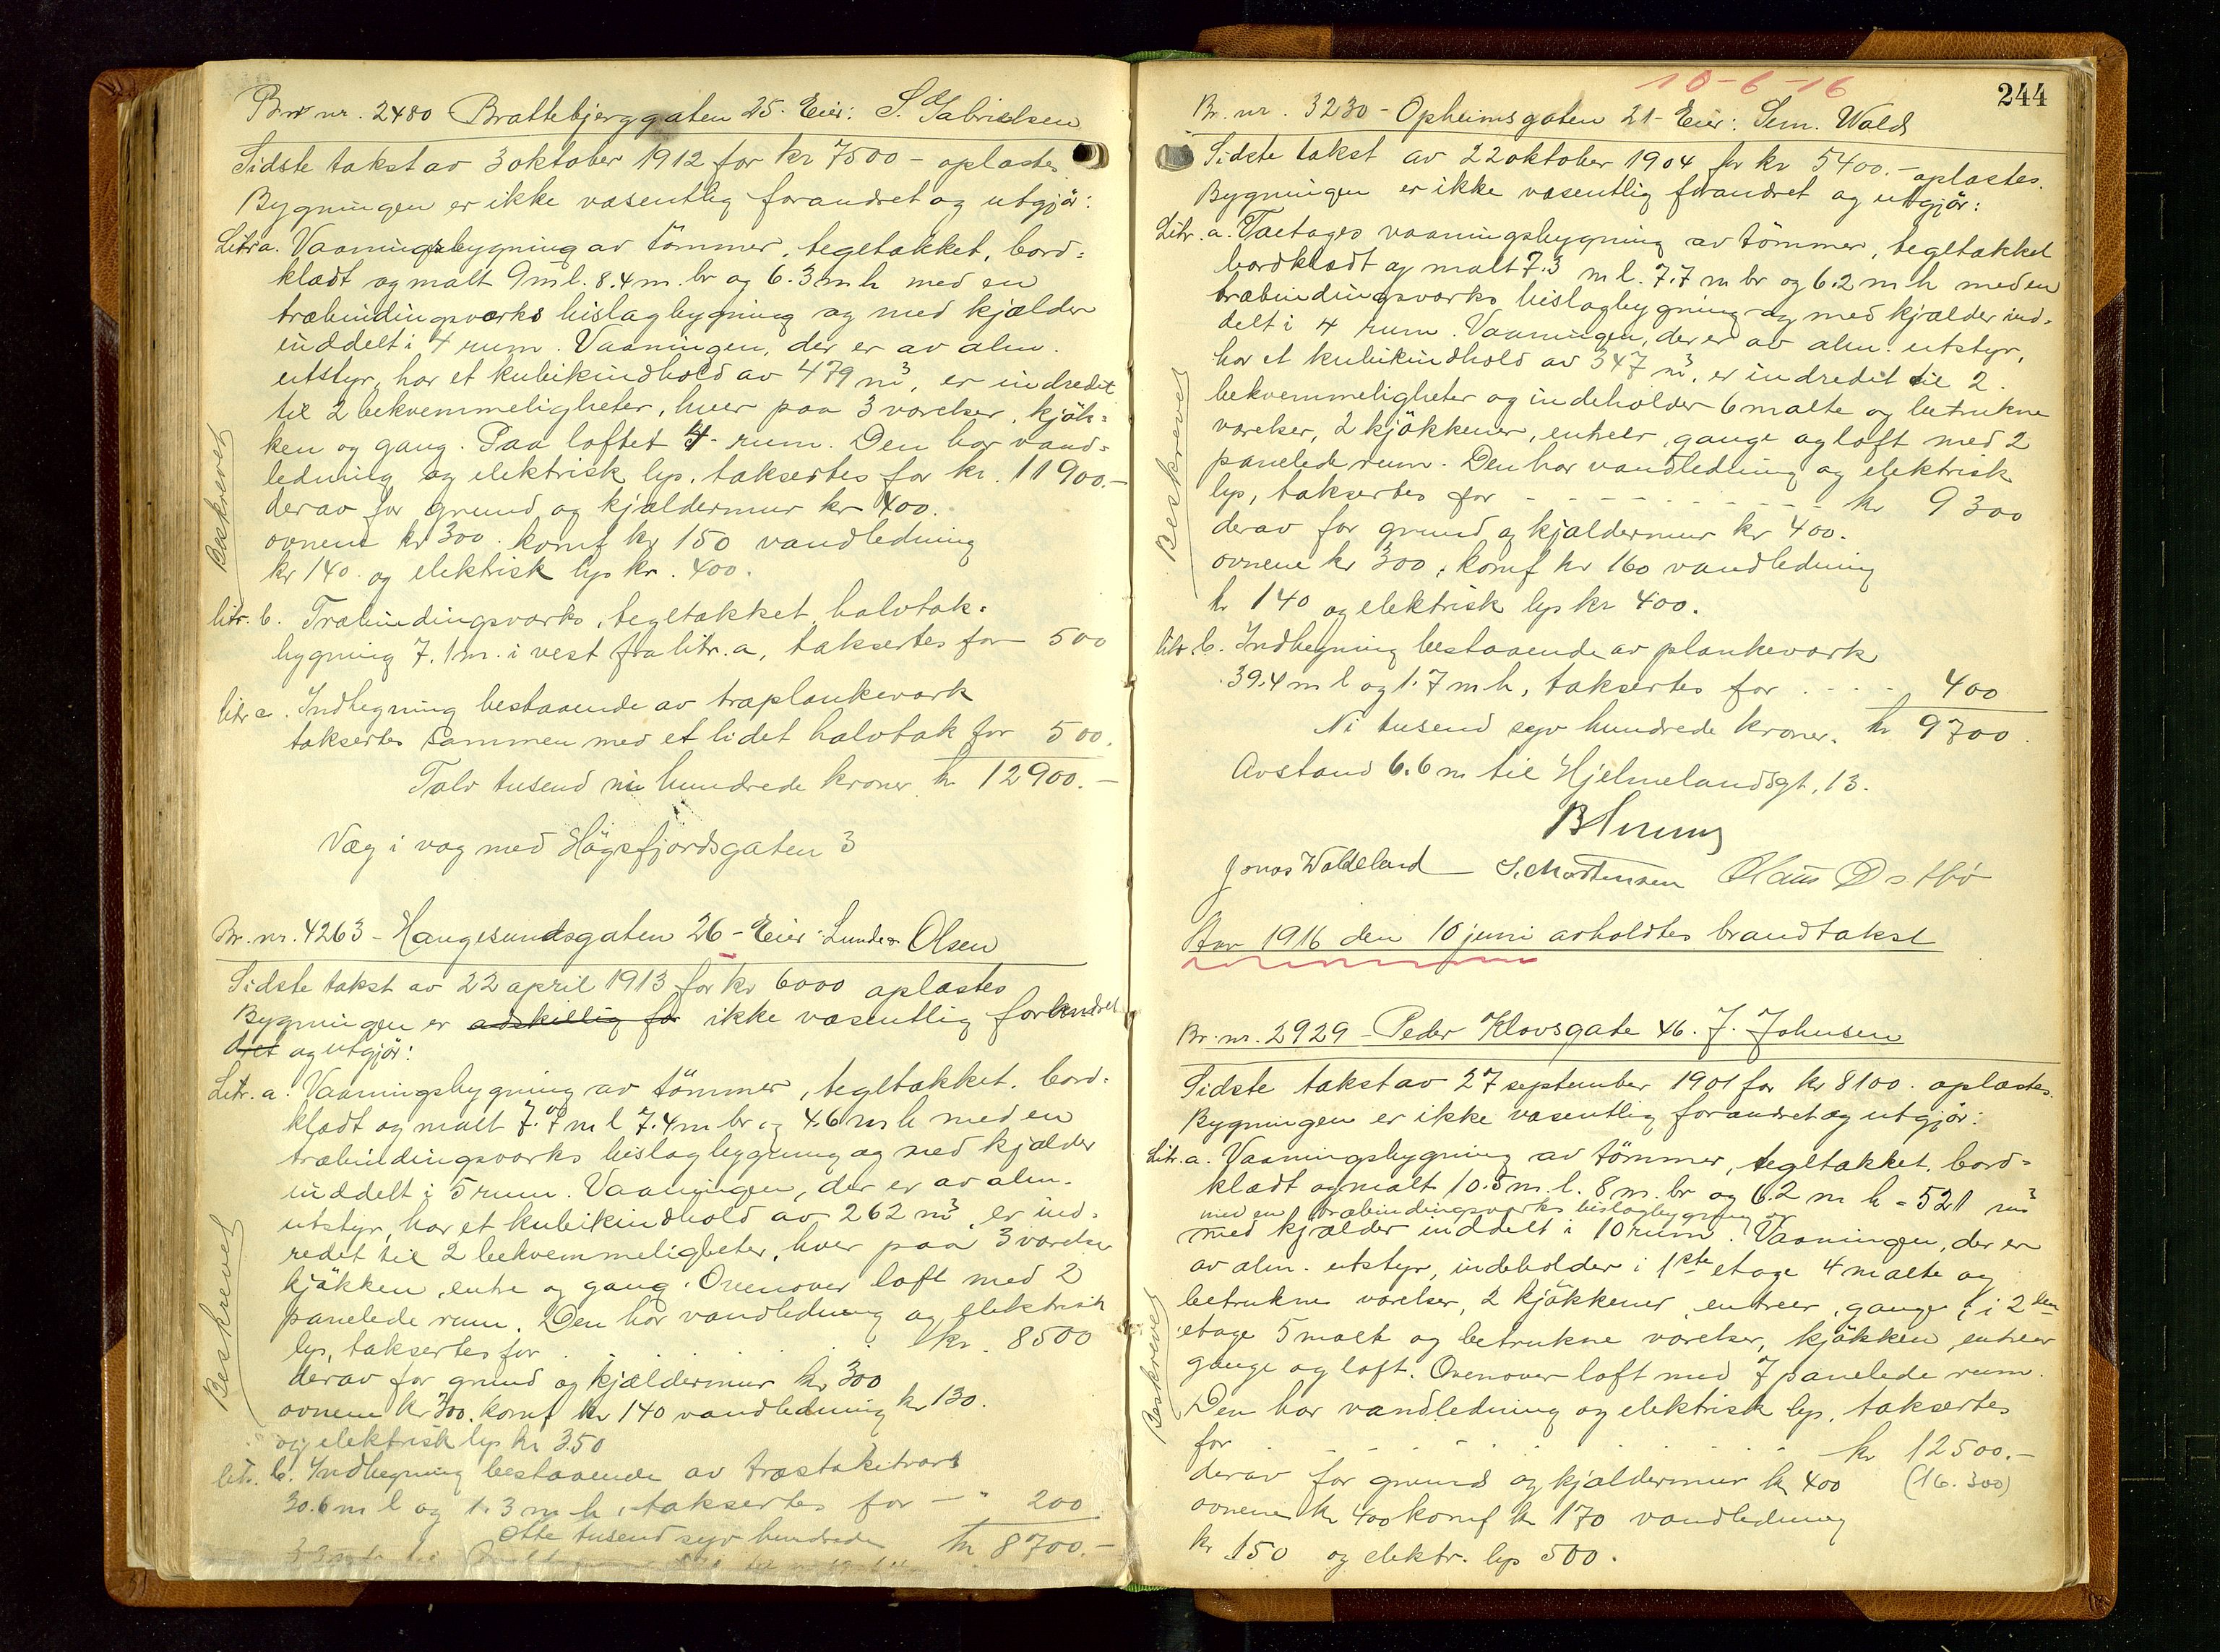 Br nr. 2480 Brattebjerggaten 25. Eier: S. Gabrielsen
Sidste takst av 3 oktober 1912 for kr 7500 - oplæstes.
Bygningen er ikke væsentlig forandret og utgjör:
Litr a. Vaaningsbygning av tömmer, tegltækket, bord=
klædt og malt 9 m l. 8.4 m. br og 6.3 m h med en
træbindingsværks bislagbygning og med kjælder
inddelt i 4 rum. Vaaningen, der er av alm.
utstyr, har et kubikindhold av 479 m³, er indredet
til 2 bekvemmeligheter, hver paa 3 værelser, kjök=
ken og gang. Paa loftet 4 rum. Den har vand=
ledning og elektrisk lys, takseres for kr. 11900.-
derav for grund og kjældermur kr 400.
ovnene kr 300. komf kr 150 vandledning
kr 140. og elektrisk lys kr. 400.
litr. b. Træbindingsværks, tegltækket halvtak=
bygning 7.1 m. i vest fra litr. a, taksertes for 500
litr c. Indhegning bestaaende av træplankeværk
taksertes sammen med et lidet halvtak for 500.
Tolv tusend ni hundrede kroner kr 12900.-
Væg i væg med Högsfjordsgaten 3
Beskrevet
Br. nr. 4263 - Haugesundsgaten 26 - Eier: Olsen
Sidste takst av 22 april 1913 for kr 6000 oplæstes
Bygningen er adskillig for ikke væsentlig forandret
dret og utgjör:
Litr. a. Vaaningsbygning av tömmer, tegltækket, bord=
klædt og malt 7.7 m l 7.4 m br og 4.6 m h med en
træbindingsværks bislagbygning og med kjælder
inddelt i 5 rum. Vaaningen, der er av alm.
utstyr, har et kubikindhold av 262 m³, er ind=
redet til 2 bekvemmeligheter, hver paa 3 værelser
kjökken, entre og gang. Ovenover loft med 2
panelede rum. Den har vandledning og elektrisk
lys, taksertes for kr. 8500
derav for grund og kjældermur kr 300
ovnene kr 300. komf kr 140 vandledning kr 130.
og elektrisk lys kr 350
litr. b. Indhegning bestaaende av træstakitværk
30.6 m l og 1.3 m h, taksertes for - " 200
Otte tusend syv hundrede kr 8700.-
Beskrevet
10-6-16
244
Br. nr. 3230 - Opheimsgaten 21 - Eier: Sem. Wald
Sidste takst av 22 oktober 1904 for kr 5400.- oplæstes.
Bygningen er ikke væsentlig forandret og utgjör:
Litr. a. Toetages vaaningsbygning av tömmer, tegltækket
bordklædt og malt 7.3 m l. 7.7 m br og 6.2 m h med en
træbindingsværks bislagbygning og med kjælder ind=
delt i 4 rum. Vaaningen, der er av alm. utstyr,
har et kubikindhold av 347 m³, er indredet til 2
bekvemmeligheter og indeholder 6 malte og betrukne
værelser, 2 kjökkener, entreer, gange og loft med 2
panelede rum. Den har vandledning og elektrisk
lys, taksertes for - - - - - - - - kr 9300
derav for grund og kjældermur kr 400.
ovnene kr 300, komf kr 160 vandledning
kr 140 og elektrisk lys kr 400.
litr b. Indhegning bestaaende av plankeværk
39.4 m l og 1.7 m h, taksertes for . . . - 400
Ni tusend syv hundrede kroner. kr 9700.
Avstand 6.6 m til Hjelmelandsgt. 13.
Beskrevet
Jonas Waldeland S. Mortensen
Aar 1916 den 10 juni avholdtes brandtakst
Br. nr. 2929 - Peder Klovsgate 46. J. Johnsen
Sidste takst av 27 september 1901 for kr 8100. oplæstes.
Bygningen er ikke væsentlig forandret og utgjör:
Litr. a. Vaaningsbygning av tömmer, tegltækket, bord=
klædt og malt 10.5 m. l. 8 m. br og 6.2 m h = 521 m³
med en træbindingsværks bislagbygning og
med kjælder inddelt i 10 rum. Vaaningen, der er
av alm. utstyr, indeholder i 1ste etage 4 malte og
betrukne værelser, 2 kjökkener, entreer, gange; i 2den
etage 5 malte og betrukne værelser, kjökken, entreer
gange og loft. Ovenover loft med 7 panelede rum.
Den har vandledning og elektrisk lys, taksertes
for . - . - . - . kr 12500.-
derav for grund og kjældermur kr 400 (16.300)
ovnene kr 400 komf kr 170 vandledning
kr 150 og elektr. lys 500.
Beskrevet